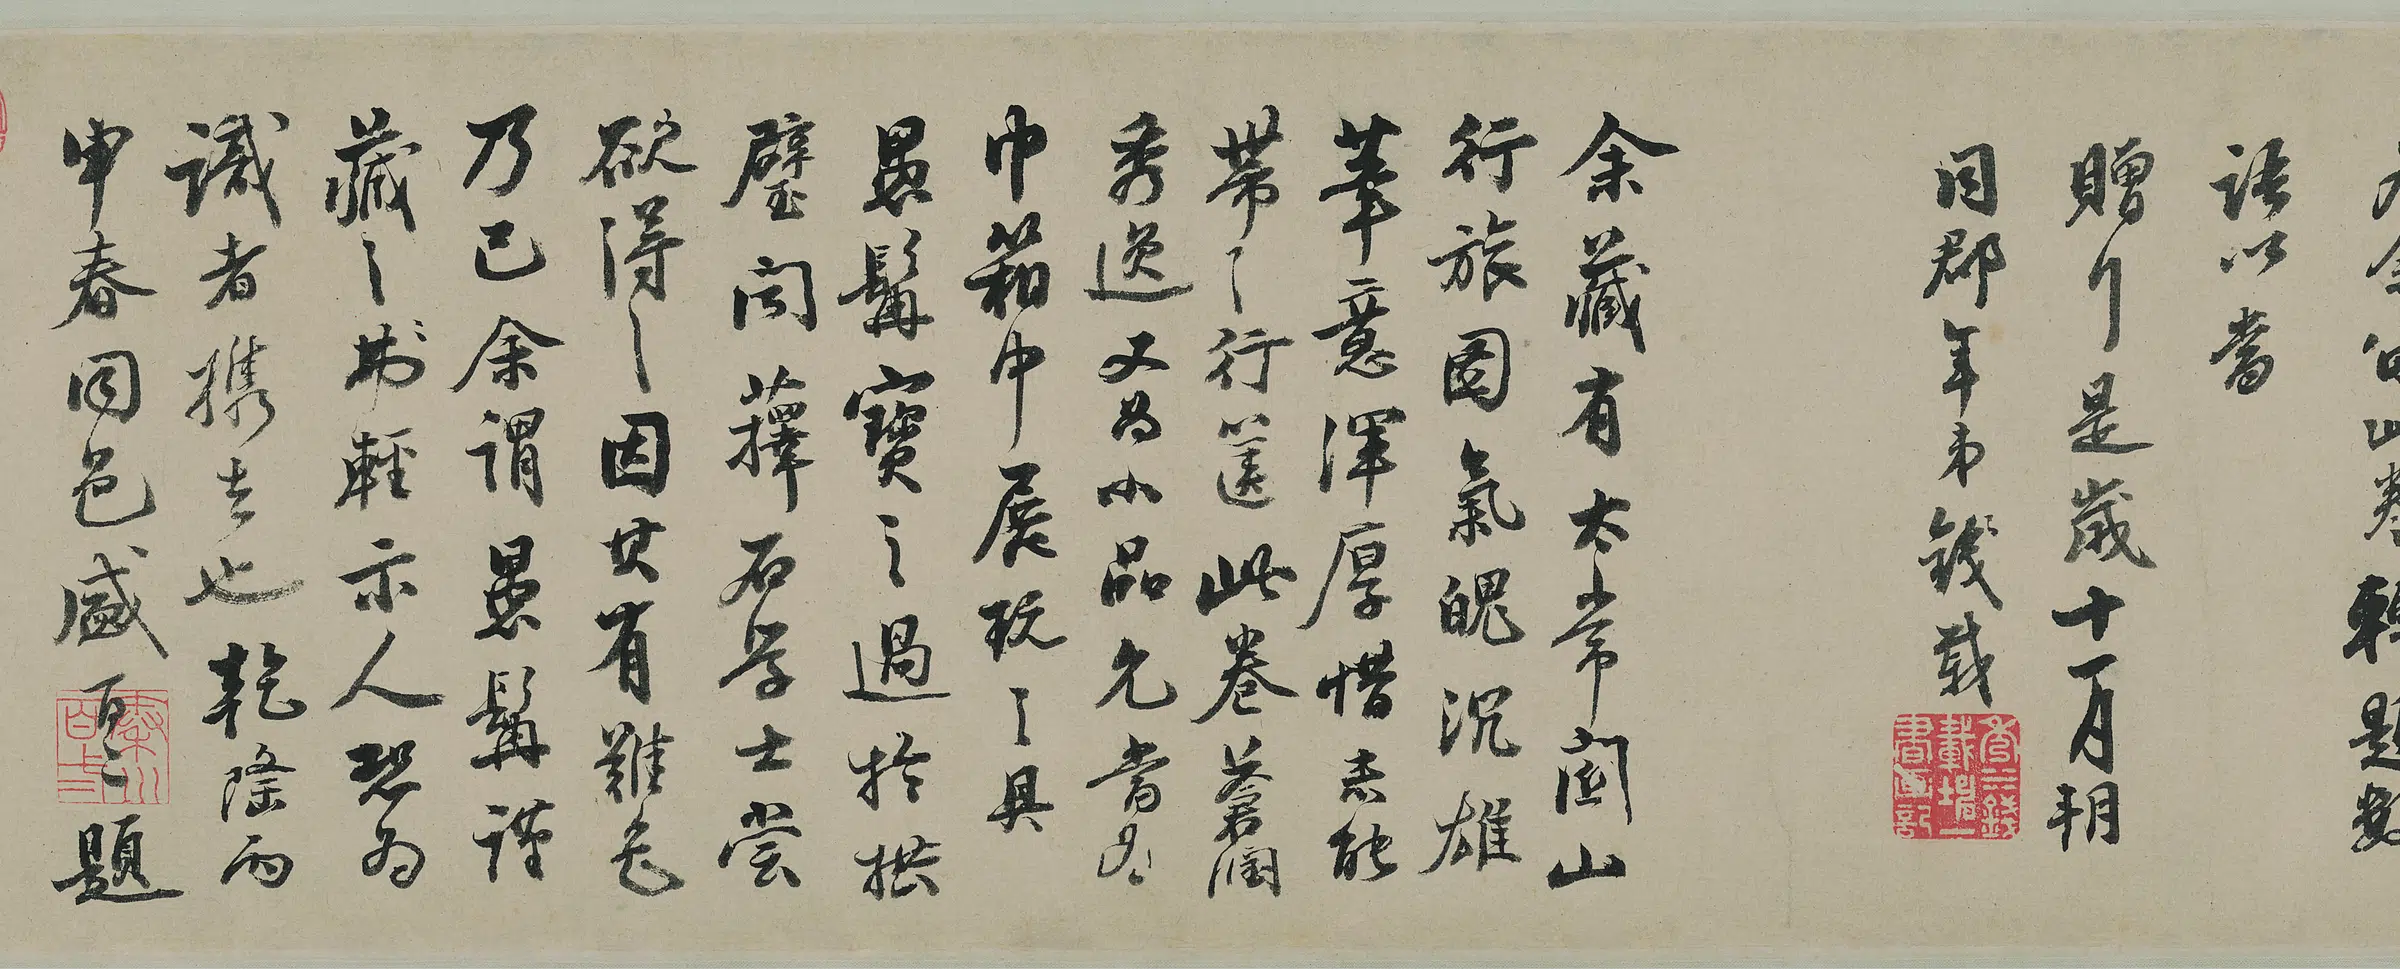 語以當
贈行是歲十一月朔
同郡年弟錢載
余藏有太常關山
行旅圖氣魄沉雄
筆意渾厚惜未能
帶之行篋此卷蒼潤
秀逸又為小品允當為
巾箱中展玩之具
愚髯寶之過於拱
璧聞蘀石學士嘗
欲得之因其有難色
乃已余謂愚髯謹
藏之勿輕示人恐為
識者攜去也乾隆丙
申春同邑盛百二題